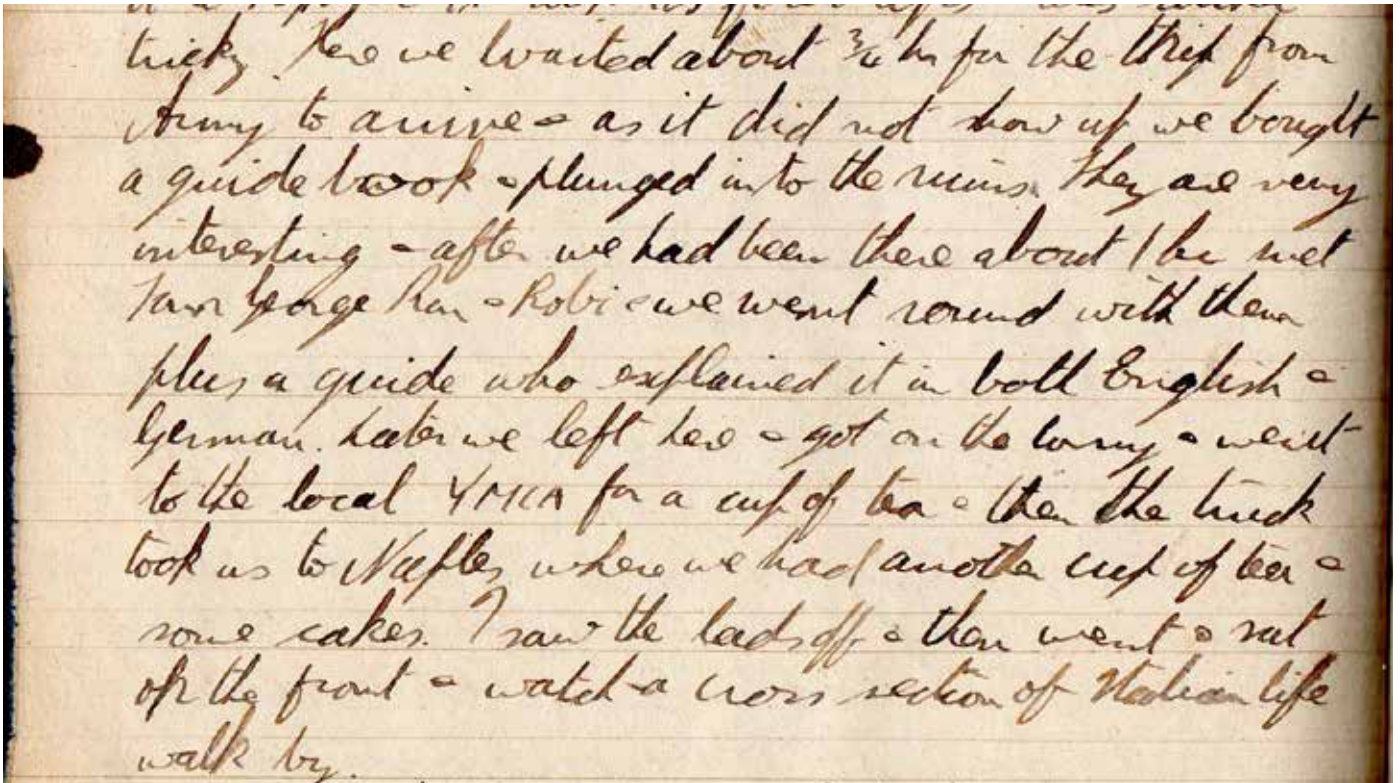 tricky. Here we waited about ¾ hr for the trip from
Army to arrive & as it did not show up we bought
a guide book & plunged into the ruins. They are very
interesting & after we had been there about 1 hr met
George & Robi & we went round with them
plus a guide who explained it in both English &
German. Later we left here & got on the lorry & went
to the local YMCA for a cup of tea & then the truck
took us to Naples where we had another cup of tea &
some cakes. I saw the lads off & then went & sat
on the front & watch a cross section of Italian life
walk by.